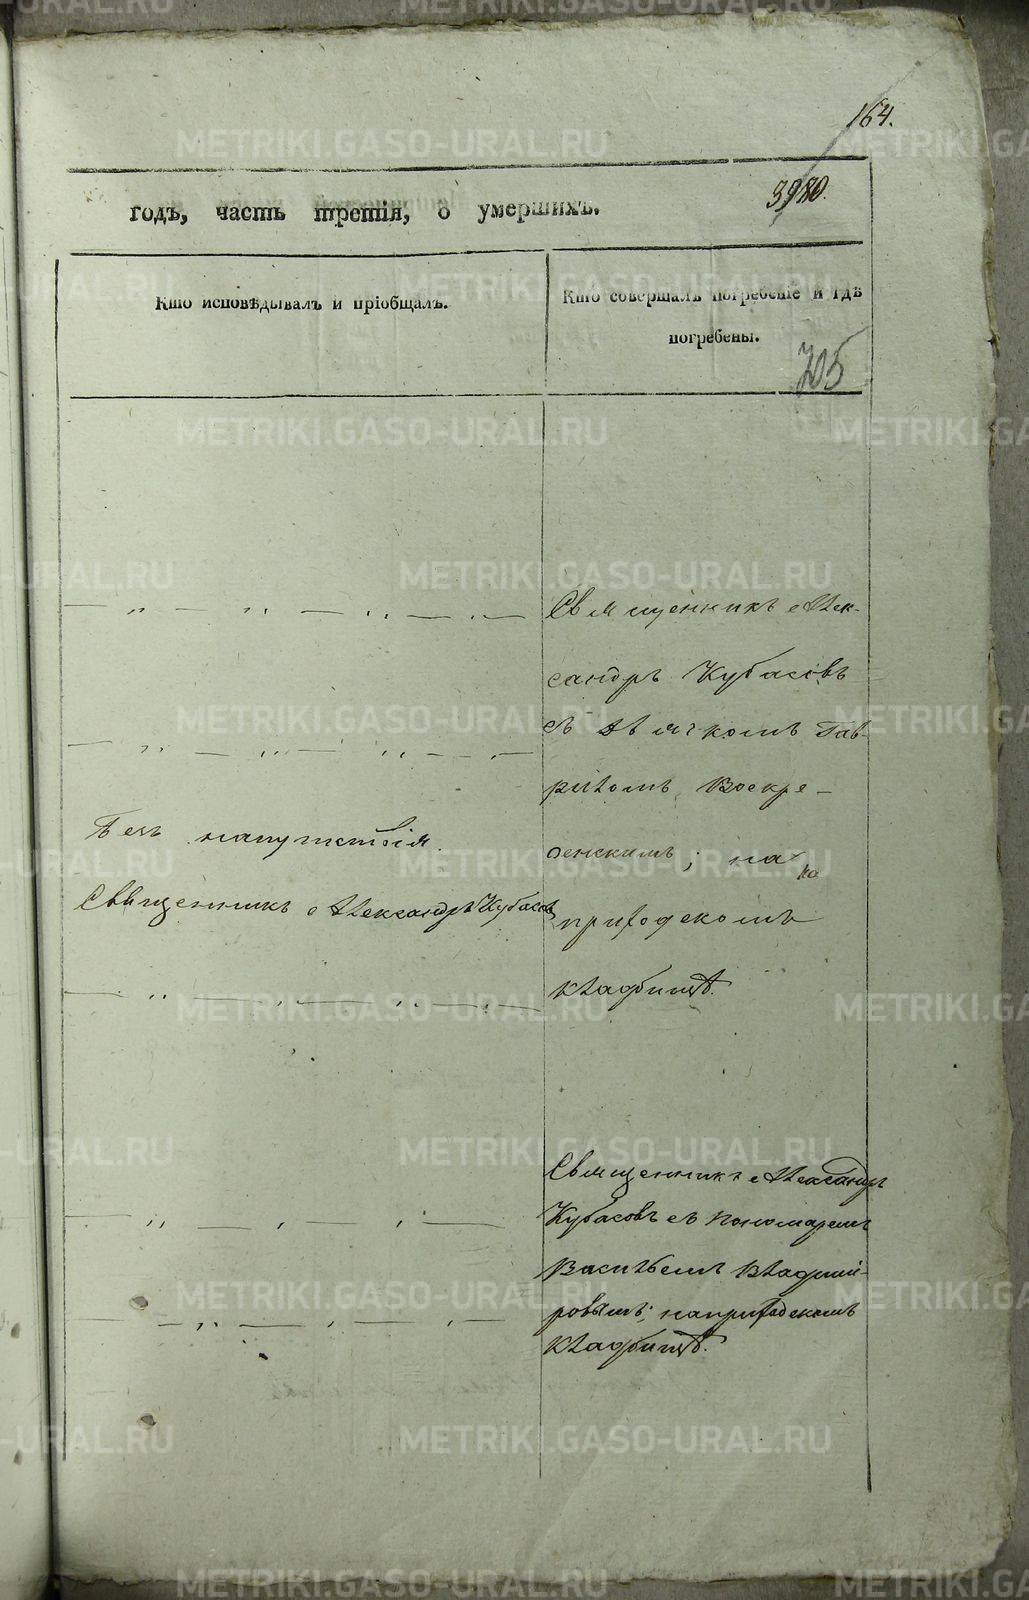 164.
годъ, часть третія, о умершихъ.
3980.
Кто исповѣдывалъ и пріобщалъ.
Кто совершалъ погребеніе и гдѣ
погребены.
705
Священникъ Алек-
сандръ Кубасовъ
съ дьячкомъ Гав-
риломъ Воскре-
сенскимъ; на
приходскомъ
кладбищѣ.
Безъ напутствія.
Священникъ Александръ Кубасовъ
Священникъ Александръ
Кубасовъ съ пономаремъ
Васильемъ Владими-
ровымъ; на приходскомъ
кладбищѣ.
METRIKI.GASO-URAL.RU